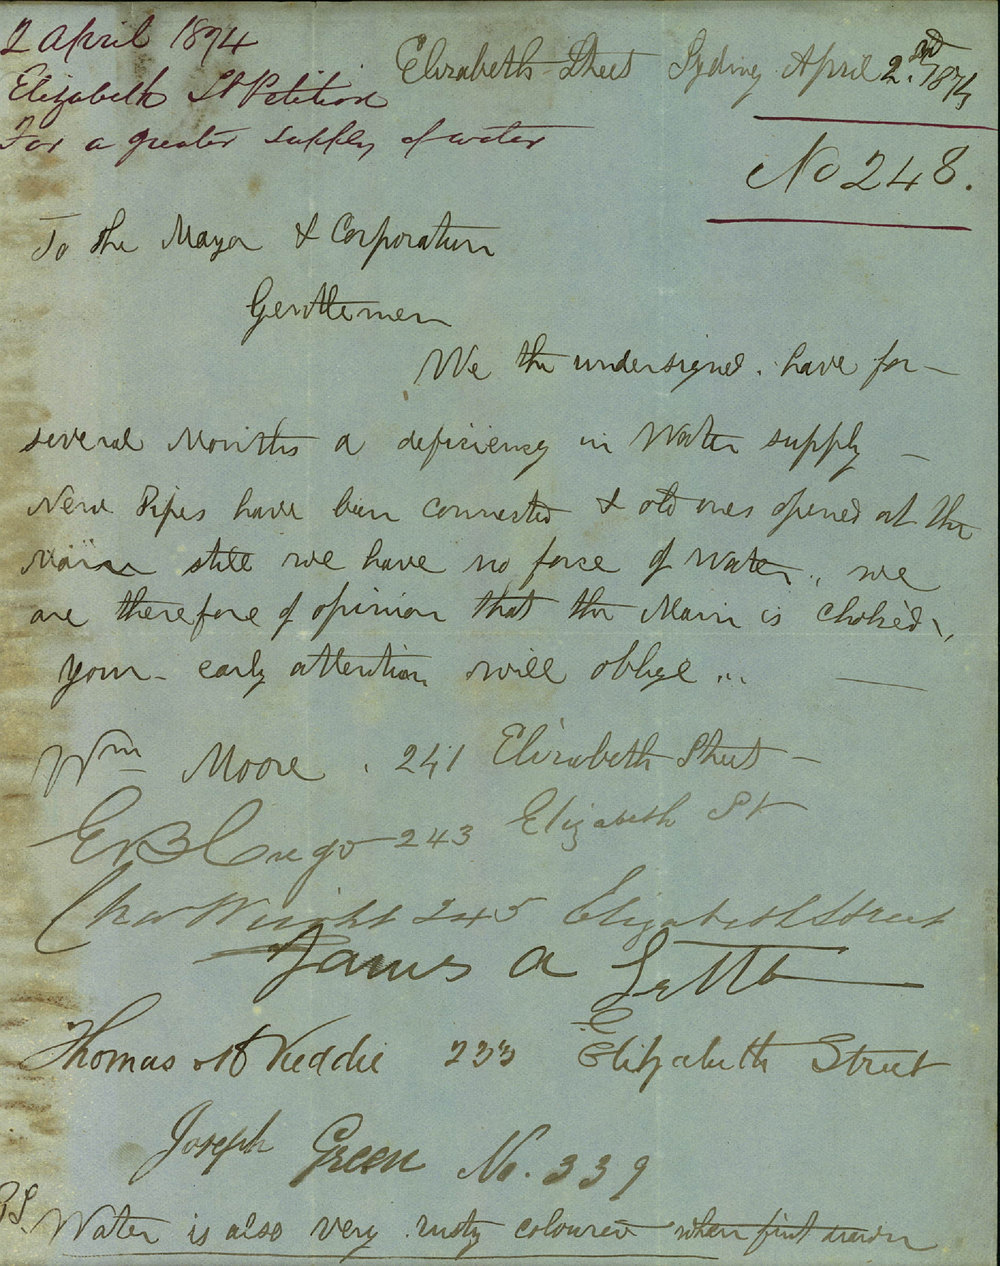 2 April 1874
Elizabeth St Petition
For a greater supply of water
Elizabeth Street Sydney April 2nd. 1874
No 248.
To the Mayor & Corporation
Gentlemen
We the undersigned. have for -
several Months a deficiency in Water supply -
New Pipes have been connected & old ones opened at the
Main still we have no force of Water., we
are therefore of opinion that the Main is choked,
your early attention will oblige ...
Wm Moore . 241 Elizabeth Street -
243 Elizabeth St
Chas Wright 245 Elizabeth Street
James A
Thomas Keddie 233 Elizabeth Street
Joseph Green No. 339
PS. Water is also very rusty coloured when first drawn